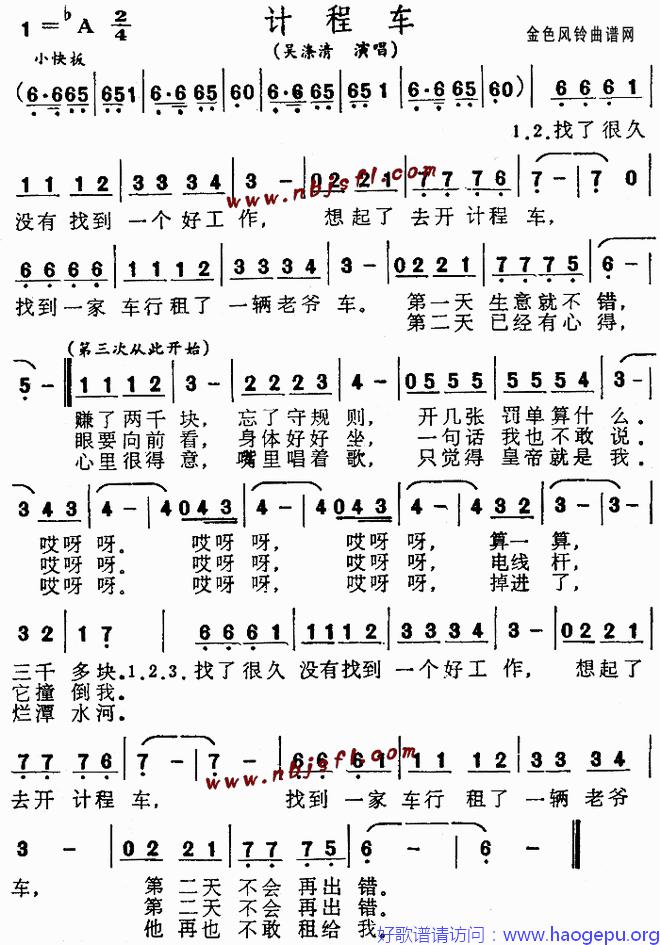 计程车
1=♭A 2/4
(吴涤清 演唱)
金色风铃曲谱网
小快板
(6·665 | 651 | 6·665 | 60 | 6·665 | 651 | 6·665 | 60) | 6661 |
1.2.找了很久
1112 | 3334 | 3 - | 0221 | 7776 | 7 - | 7 0
www.nbjsfl.com
没有找到 一个好工作, 想起了 去开计程车,
6666 | 1112 | 3334 | 3 - | 0221 | 7775 | 6 -
找到一家 车行租了 一辆老爷车。 第一天 生意就不错,
第二天 已经有心得,
(第三次从此开始)
5 - ‖ 1112 | 3 - | 2223 | 4 - | 0555 | 5554 | 3 -
赚了两千块, 忘了守规则, 开几张 罚单算什么。
眼要向前看, 身体好好坐, 一句话 我也不敢说。
心里很得意, 嘴里唱着歌, 只觉得 皇帝就是我。
3 43 | 4 - | 4 043 | 4 - | 4 043 | 4 - | 4 32 | 3 - | 3 -
哎呀呀。 哎呀呀, 哎呀呀, 算一算,
哎呀呀。 哎呀呀, 哎呀呀, 电线杆,
哎呀呀。 哎呀呀, 哎呀呀, 掉进了,
3 2 | 1 7 | 6661 | 1112 | 3334 | 3 - | 0221
三千多块。1.2.3.找了很久 没有找到 一个好工作, 想起了
它撞倒我。
烂潭水河。
77 76 | 7 - | 7 - | 66 61 | 11 12 | 33 34
www.nbjsfl.com
去开计程车, 找到一家 车行租了 一辆老爷
3 - | 02 21 | 77 75 | 6 - | 6 - ‖
车, 第二天 不会再出错。
第二天 不会再出错。
他再也 不敢租给我。
好歌谱请访问:www.haogepu.org